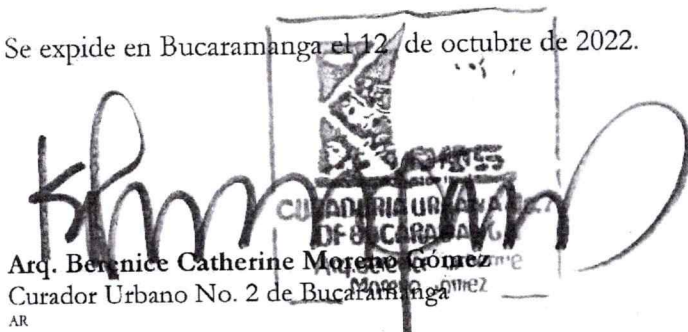 Se expide en Bucaramanga el 12 de octubre de 2022.
CURADURIA URBANA No. 2
DE BUCARAMANGA
Arq. Berenice Catherine Moreno Gómez
Curador Urbano No. 2 de Bucaramanga
Moreno Gómez
AR